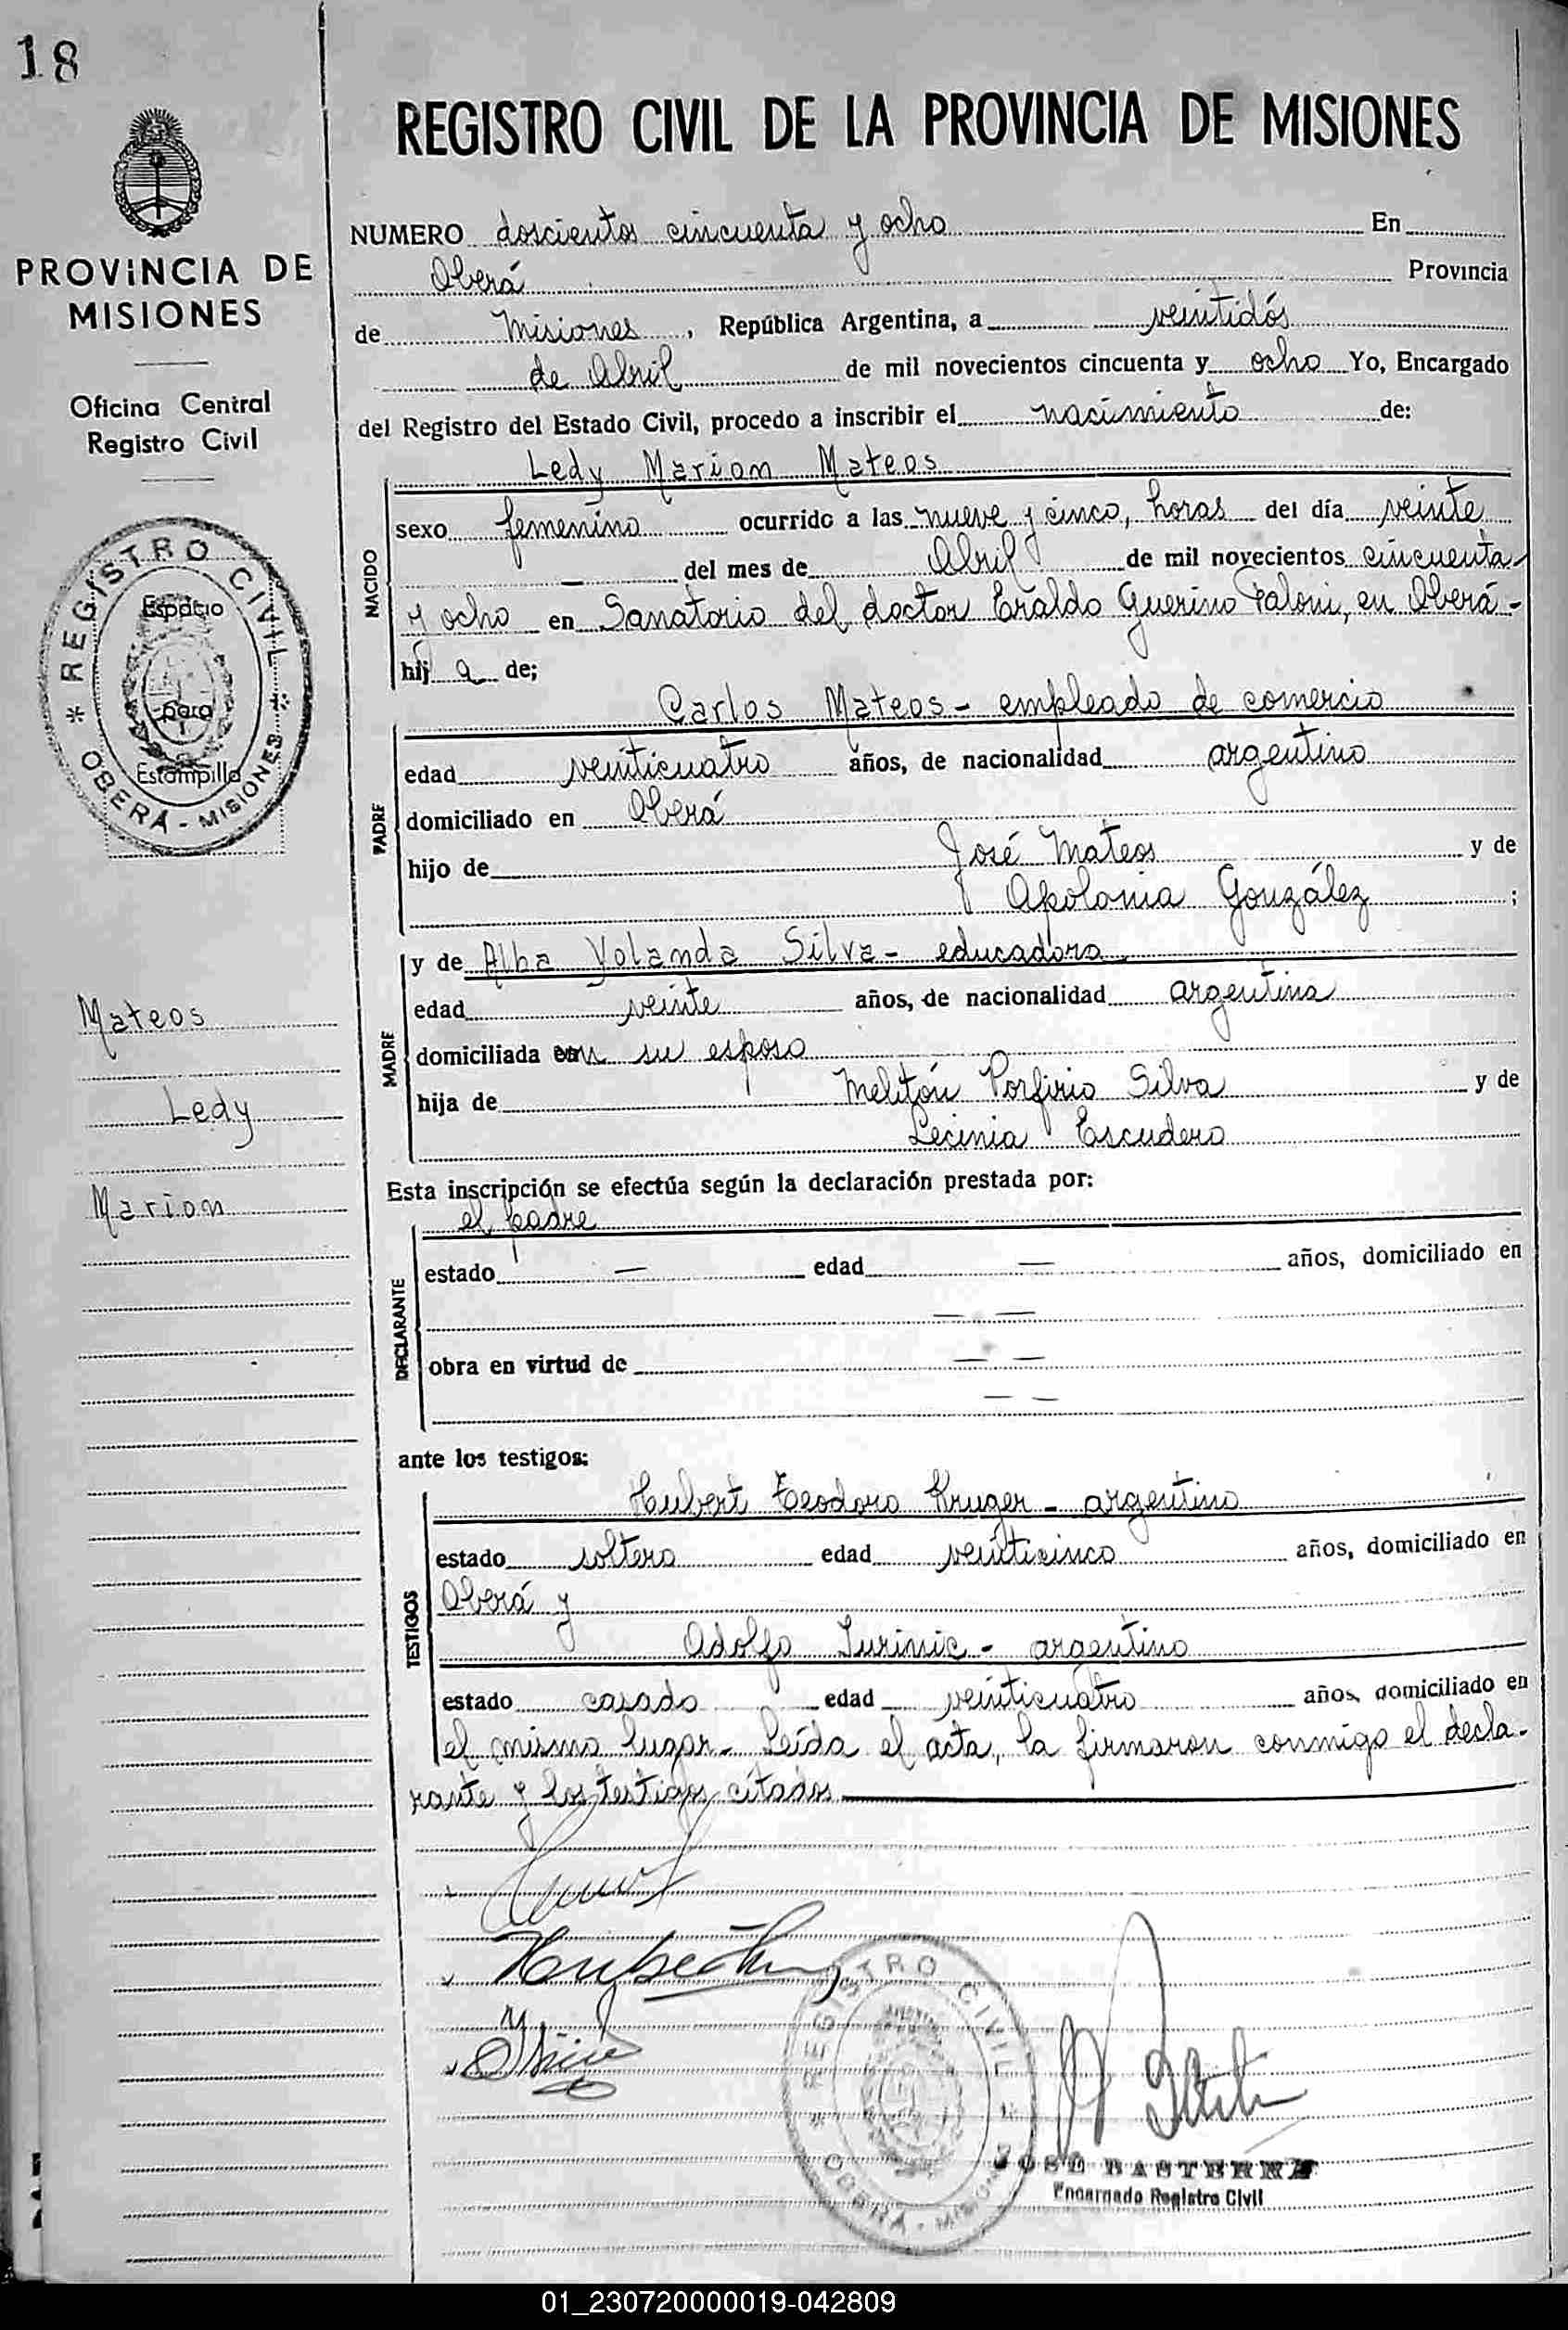 18
REGISTRO CIVIL DE LA PROVINCIA DE MISIONES
PROVINCIA DE
MISIONES
Oficina Central
Registro Civil
REGISTRO CIVIL
OBERÁ - MISIONES
Espacio
para
Estampilla
Mateos
Ledy
Marion
NUMERO doscientos cincuenta y ocho En
Oberá Provincia
de Misiones, República Argentina, a veintidós
de Abril de mil novecientos cincuenta y ocho Yo, Encargado
del Registro del Estado Civil, procedo a inscribir el nacimiento de:
NACIDO
Ledy Marion Mateos
sexo femenino ocurrido a las nueve y cinco, horas del día veinte
— del mes de Abril de mil novecientos cincuenta
y ocho en Sanatorio del doctor Eraldo Guerino Faloni, en Oberá-
hij a de;
PADRE
Carlos Mateos - empleado de comercio
edad veinticuatro años, de nacionalidad argentino
domiciliado en Oberá
hijo de José Mateos y de
Apolonia González ;
MADRE
y de Alba Yolanda Silva - educadora
edad veinte años, de nacionalidad argentina
domiciliada con su esposo
hija de Melitón Porfirio Silva y de
Lecinia Escudero
Esta inscripción se efectúa según la declaración prestada por:
DECLARANTE
el padre
estado — edad — años, domiciliado en
— —
obra en virtud de — —
— —
ante los testigos:
TESTIGOS
Hubert Teodoro Kruger - argentino
estado soltero edad veinticinco años, domiciliado en
Oberá y
Adolfo Jurinic - argentino
estado casado edad veinticuatro años, domiciliado en
el mismo lugar - Leída el acta, la firmaron conmigo el decla-
rante y los testigos citados
REGISTRO CIVIL
OBERÁ - MISIONES
JOSÉ
Encargado Registro Civil
01_230720000019-042809